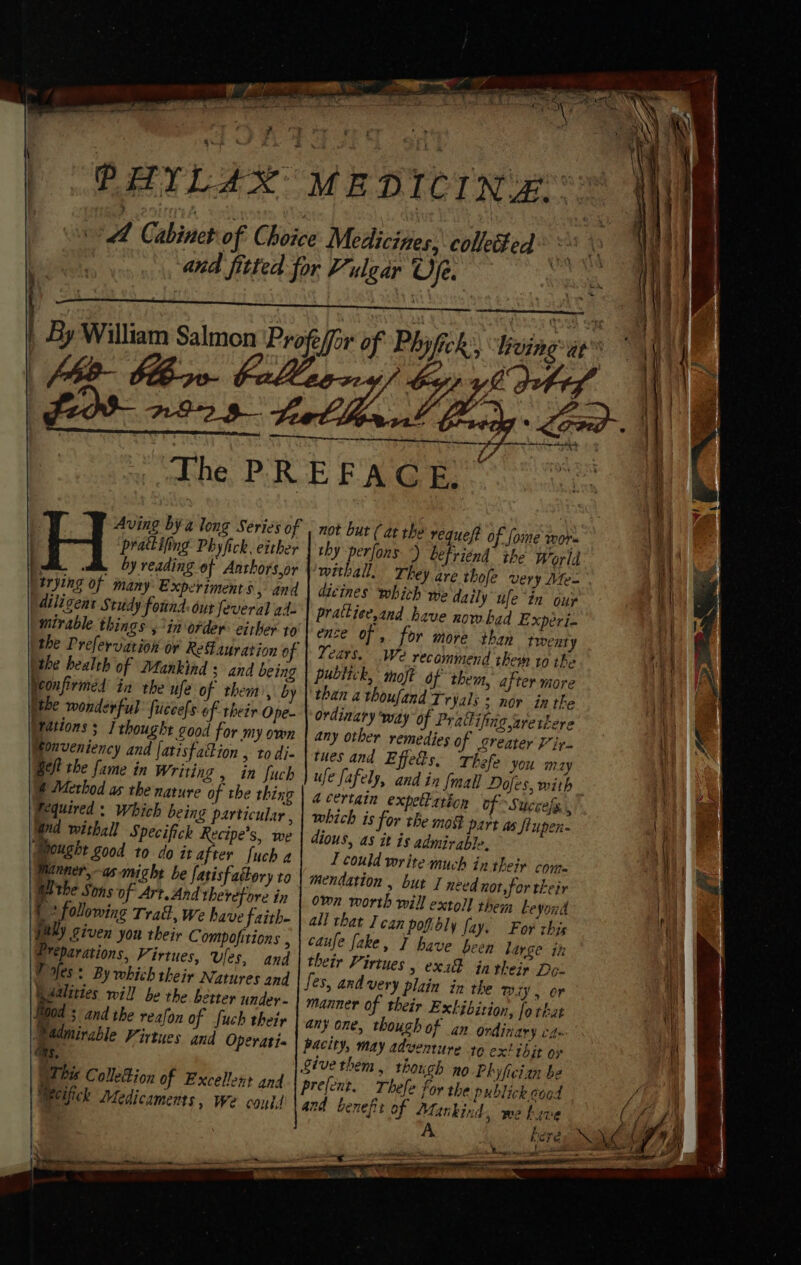 PHYLAX MEDICINÆ.
A Cabinet of Choice Medicines, collected
and fitted for Vulgar Uſe.
By William Salmon Profeſſor of Phyſick, living at
the Blew Balleony by ye Ditch
ſide neare Holborn Bridg · Lond.
The PREFACE.
HAving by a long Series of
practiſing Phyſick, either
by reading of Authors, or
trying of many Experiments, and
diligent Study found out ſeveral ad-
mirable things, in order either to
the Preſervation or Reſtauration of
the health of Mankind; and being
confirmed in the uſe of them, by
the wonderful ſucceſs of their Ope-
rations; I thought good for my own
conveniency and ſatisfaction, to di-
geſt the ſame in Writing, in ſuch
a Method as the nature of the thing
required: Which being particular,
and withall Specifick Recipe's, we
thought good to do it after ſuch a
Manner, as might be ſatisfactory to
all the Sons of Art. And therefore in
following Tract, We have faith-
fully given you their Compoſitions,
Preparations, Virtues, Uſes, and
Doſes: By which their Natures and
Qualities will be the better under-
ſtood; and the reaſon of ſuch their
admirable Virtues and Operati-
ons.
This Collection of Excellent and
Specifick Medicaments, We could
not but (at the requeſt of ſome wor-
thy perſons) befriend the World
withall. They are thoſe very Me-
dicines which we daily uſe in our
practice, and have now had Experi-
ence of, for more than twenty
Years. We recommend them to the
publick, moſt of them, after more
than a thouſand Tryals; nor in the
ordinary way of Practiſing, are there
any other remedies of greater Vir-
tues and Effects. Theſe you may
uſe ſafely, and in ſmall Doſes, with
a certain expectation of Succeſs,
which is for the moſt part as ſtupen-
dious, as it is admirable.
I could write much in their com-
mendation, but I need not, for their
own worth will extoll them beyond
all that I can poſſibly ſay. For this
cauſe ſake, I have been large in
their Virtues, exact in their Do-
ſes, and very plain in the way, or
manner of their Exhibition, ſo that
any one, though of an ordinary ca-
pacity, may adventure to exhibit or
give them, though no Phyſician be
preſent. Theſe for the publick good
and benefit of Mankind, we have
A
here